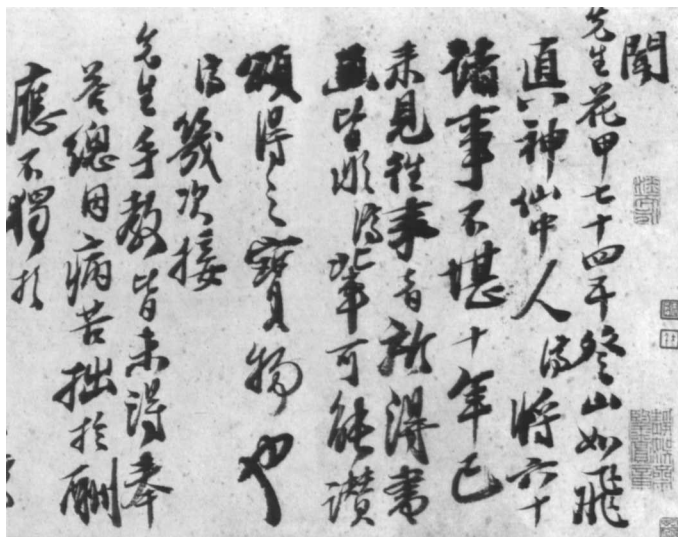 聞
先生花甲七十四五登山如飛
真神仙中人濟將六十
諸事不堪十年已
來見往來者所得書
畫皆非濟輩可能讚
頌得之寶物也
濟幾次接
先生手教皆未得奉
答總因病苦拙於酬
應不獨於